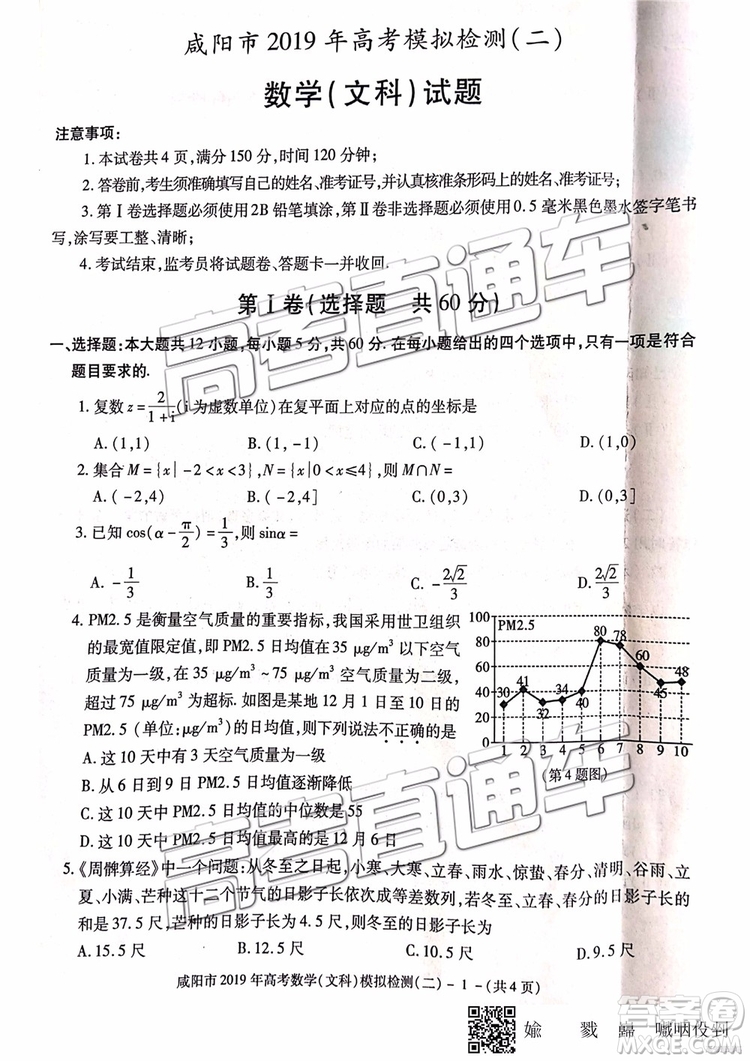 咸阳市 2019 年高考模拟检测(二)
数学(文科)试题
注意事项:
1. 本试卷共 4 页,满分 150 分,时间 120 分钟;
2. 答卷前,考生须准确填写自己的姓名、准考证号,并认真核准条形码上的姓名、准考证号;
3. 第Ⅰ卷选择题必须使用 2B 铅笔填涂,第Ⅱ卷非选择题必须使用 0.5 毫米黑色墨水签字笔书
写,涂写要工整、清晰;
4. 考试结束,监考员将试题卷、答题卡一并收回.
第Ⅰ卷(选择题 共 60 分)
一、选择题:本大题共 12 小题,每小题 5 分,共 60 分. 在每小题给出的四个选项中,只有一项是符合
题目要求的.
1. 复数 z = 2/(1+i) (i 为虚数单位)在复平面上对应的点的坐标是
A. (1,1) B. (1,-1) C. (-1,1) D. (1,0)
2. 集合 M = {x| -2<x<3},N = {x|0<x≤4},则 M∩N =
A. (-2,4) B. (-2,4] C. (0,3) D. (3,4]
3. 已知 cos(α - π/2) = 1/3,则 sinα =
A. -1/3 B. 1/3 C. -2√2/3 D. 2√2/3
4. PM2.5 是衡量空气质量的重要指标,我国采用世卫组织
的最宽值限定值,即 PM2.5 日均值在 35 μg/m³ 以下空气
质量为一级,在 35 μg/m³ ~75 μg/m³ 空气质量为二级,
超过 75 μg/m³ 为超标. 如图是某地 12 月 1 日至 10 日的
PM2.5 (单位:μg/m³)的日均值,则下列说法不正确的是
A. 这 10 天中有 3 天空气质量为一级
B. 从 6 日到 9 日 PM2.5 日均值逐渐降低
C. 这 10 天中 PM2.5 日均值的中位数是 55
D. 这 10 天中 PM2.5 日均值最高的是 12 月 6 日
100 PM2.5
80 80 78
60 60
40 30 41 32 34 40 45 48
20
0 1 2 3 4 5 6 7 8 9 10
(第 4 题图)
5. 《周髀算经》中一个问题:从冬至之日起,小寒、大寒、立春、雨水、惊蛰、春分、清明、谷雨、立
夏、小满、芒种这十二个节气的日影子长依次成等差数列,若冬至、立春、春分的日影子长的
和是 37.5 尺,芒种的日影子长为 4.5 尺,则冬至的日影子长为
A. 15.5 尺 B. 12.5 尺 C. 10.5 尺 D. 9.5 尺
咸阳市 2019 年高考数学(文科)模拟检测(二) - 1 - (共 4 页)
高考直通车
高考直通车
答案圈
MXQE.COM